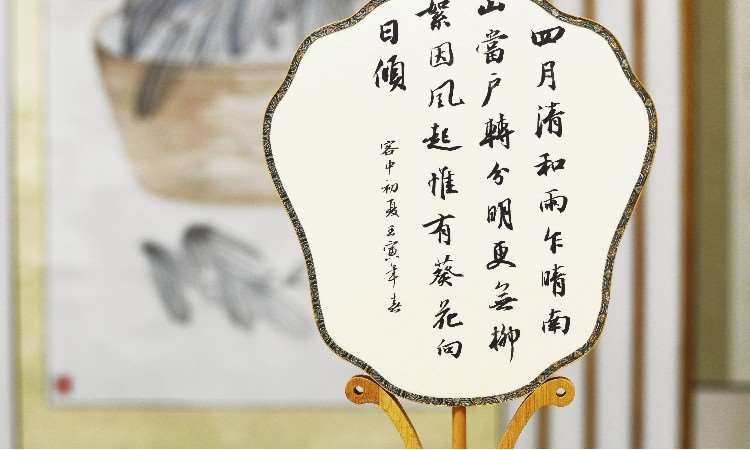 四月清和雨乍晴南
山當户轉分明更無柳
絮因风起惟有葵花向
日傾
客中初夏壬寅年春